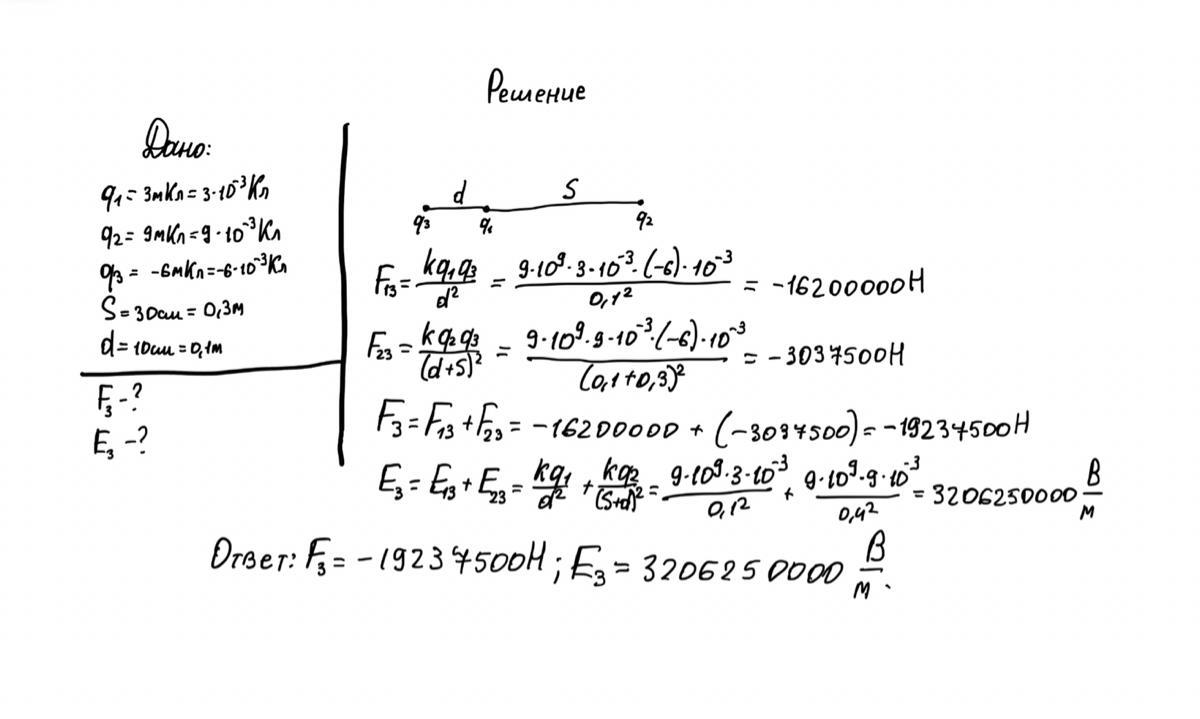 Решение
Дано:
q₁ = 3мКл = 3·10⁻³Кл
q₂ = 9мКл = 9·10⁻³Кл
q₃ = -6мКл = -6·10⁻³Кл
S = 30см = 0,3м
d = 10см = 0,1м
F₃ - ?
E₃ - ?
d S
q₃ q₁ q₂
F₁₃ = kq₁q₃/d² = 9·10⁹·3·10⁻³·(-6)·10⁻³/0,1² = -16200000Н
F₂₃ = kq₂q₃/(d+S)² = 9·10⁹·9·10⁻³·(-6)·10⁻³/(0,1+0,3)² = -3037500Н
F₃ = F₁₃ + F₂₃ = -16200000 + (-3037500) = -19237500Н
E₃ = E₁₃ + E₂₃ = kq₁/d² + kq₂/(S+d)² = 9·10⁹·3·10⁻³/0,1² + 9·10⁹·9·10⁻³/0,4² = 3206250000 В/м
Ответ: F₃ = -19237500Н; E₃ = 3206250000 В/м.